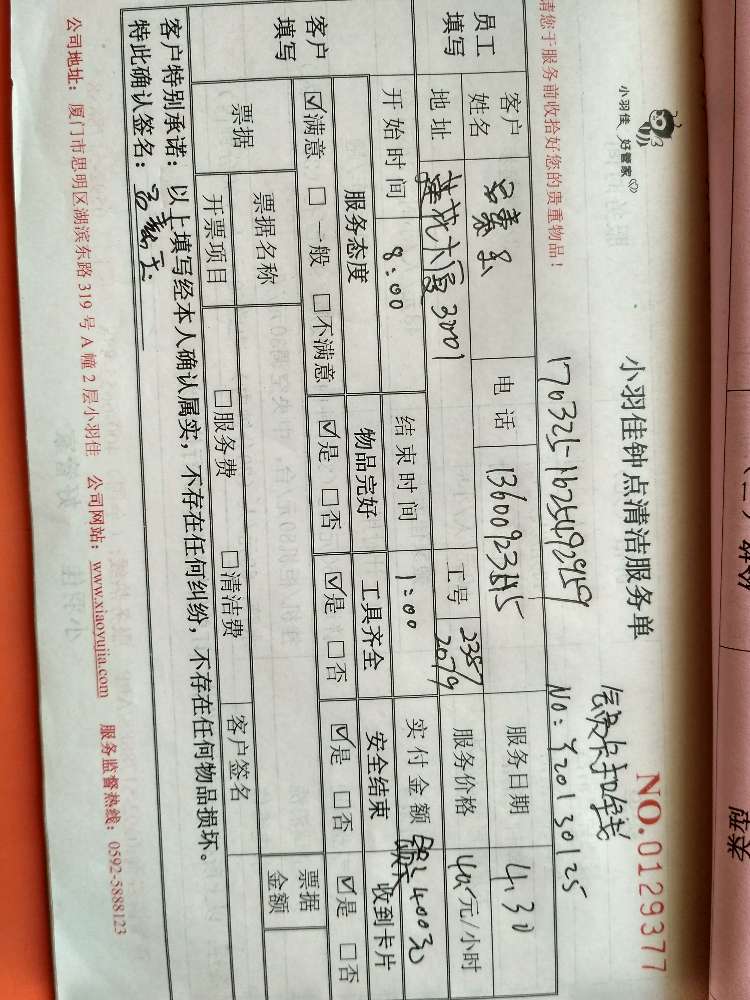 小羽佳 好管家
小羽佳钟点清洁服务单
NO.0129377
请您于服务前收拾好您的贵重物品！
170325-1625492959
NO: Y20130125
员工填写
客户姓名
电话
服务日期 4.30
地址 莲花大厦3001
工号 2387 2079
服务价格 40元/小时
开始时间 8:00
结束时间 1:00
实付金额 400元
客户填写
服务态度 物品完好 工具齐全 安全结束 收到卡片
☑满意 □一般 □不满意 ☑是 □否 ☑是 □否 ☑是 □否 ☑是 □否
票据
票据名称
票据金额
开票项目 □服务费 □清洁费 客户签名
客户特别承诺：以上填写经本人确认属实，不存在任何纠纷，不存在任何物品损坏。
特此确认签名：
公司地址：厦门市思明区湖滨东路319号A幢2层小羽佳 公司网站：www.xiaoyujia.com 服务监督热线：0592-5888123